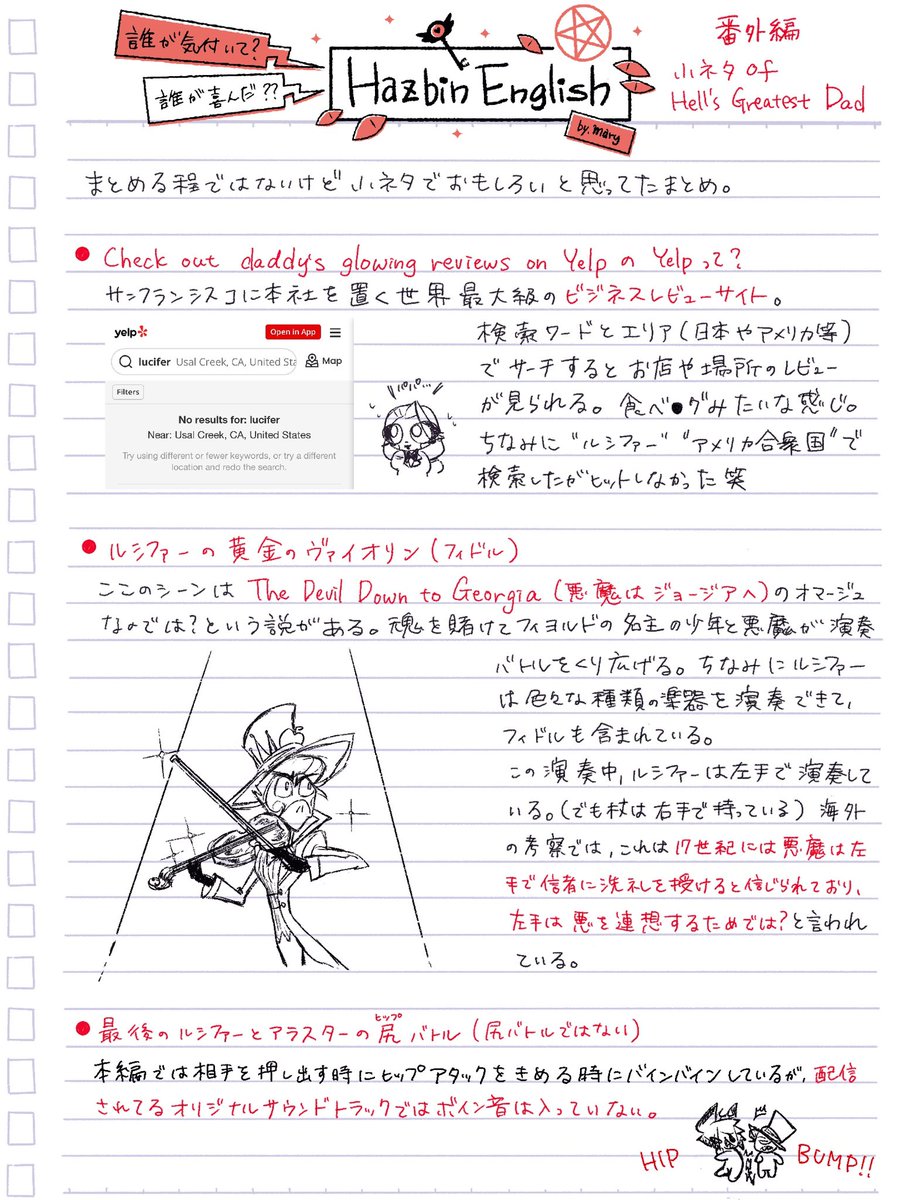 誰が気付いて?
誰が喜んだ??
Hazbin English
by. mary
番外編
小ネタ of
Hell's Greatest Dad
まとめる程ではないけど小ネタでおもしろいと思ってたまとめ。
● Check out daddy's glowing reviews on Yelp の Yelp って?
サンフランシスコに本社を置く世界最大級のビジネスレビューサイト。
yelp
Open in App
lucifer Usal Creek, CA, United Sta
Map
Filters
No results for: lucifer
Near: Usal Creek, CA, United States
Try using different or fewer keywords, or try a different
location and redo the search.
パパ...
検索ワードとエリア(日本やアメリカ等)
でサーチするとお店や場所のレビュー
が見られる。食べ●グみたいな感じ。
ちなみに"ルシファー" "アメリカ合衆国"で
検索したがヒットしなかった笑
● ルシファーの黄金のヴァイオリン(フィドル)
ここのシーンは The Devil Down to Georgia (悪魔はジョージアへ)のオマージュ
なのでは?という説がある。魂を賭けてフィヨルドの名主の少年と悪魔が演奏
バトルをくり広げる。ちなみにルシファー
は色々な種類の楽器を演奏できて、
フィドルも含まれている。
この演奏中、ルシファーは左手で演奏して
いる。(でも杖は右手で持っている) 海外
の考察では、これは17世紀には悪魔は左
手で信者に洗礼を授けると信じられており、
左手は悪を連想するためでは?と言われ
ている。
● 最後のルシファーとアラスターの尻バトル(尻バトルではない)
ヒップ
本編では相手を押し出す時にヒップアタックをきめる時にバインバインしているが、配信
されてるオリジナルサウンドトラックではボイン音は入っていない。
HIP BUMP!!